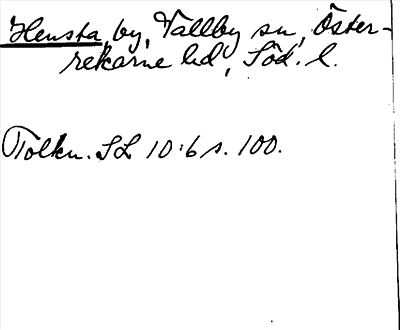 Hensta, by, Vallby sn, Öster-
rekarne hd, Söd. l.
Tolkn. SL 10:6 s. 100.